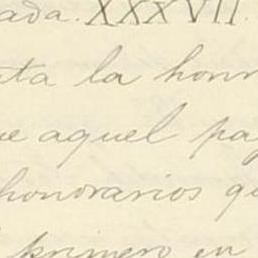 ada. XXXVII.
ta la honr
ue aquel pa
honorarios q
primero en